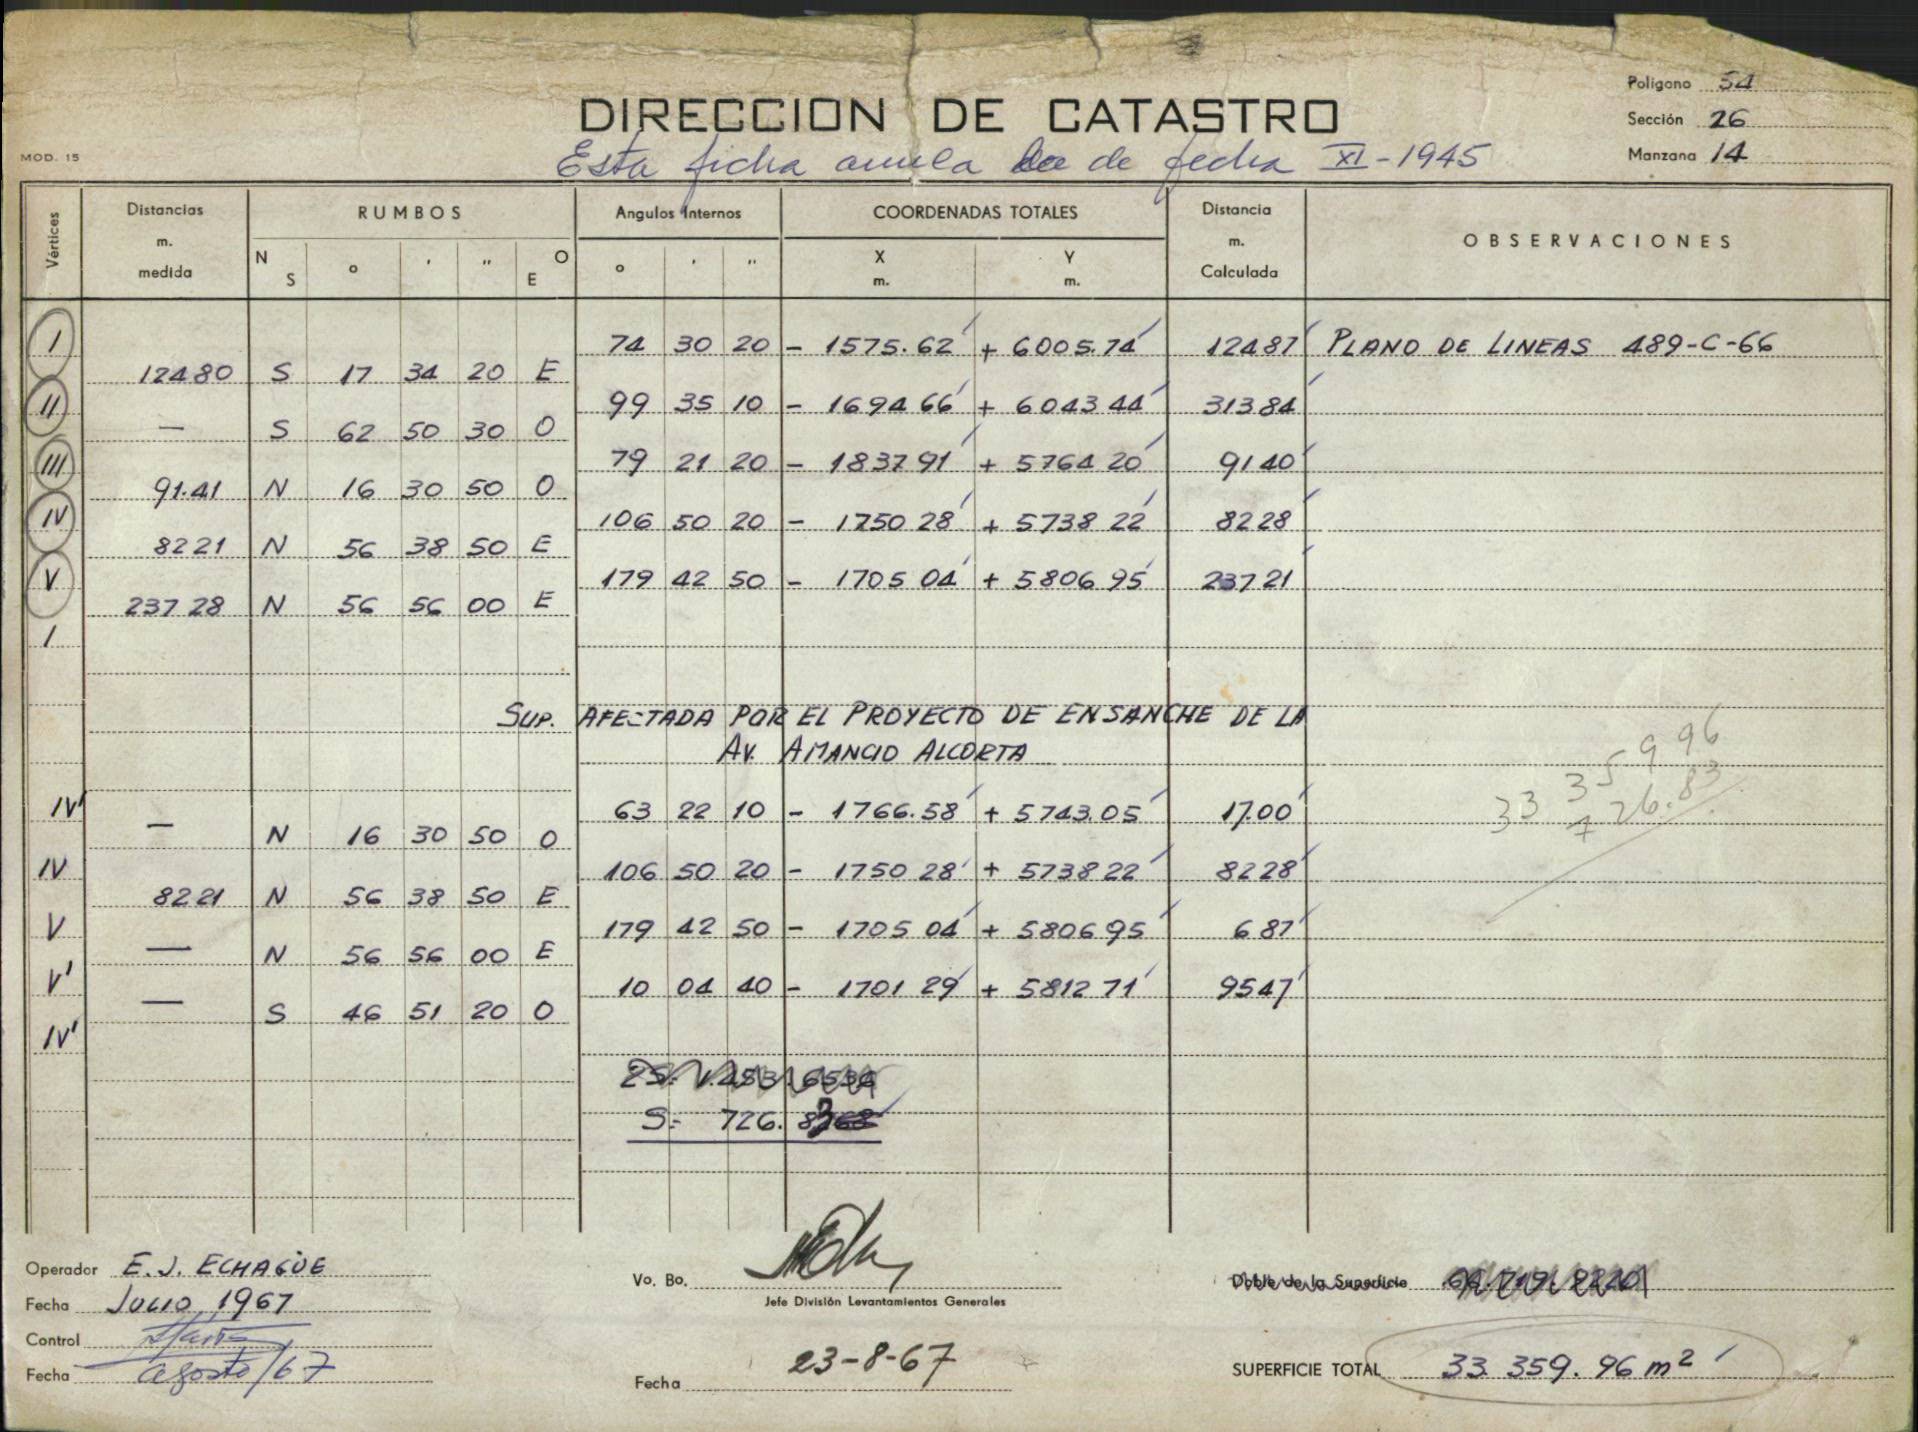 Polígono 54
DIRECCION DE CATASTRO
Sección 26
MOD. 15
Esta ficha anula la de fecha XI-1945
Manzana 14
Vértices Distancias m. medida RUMBOS N S ° ' '' O E Angulos Internos ° ' '' COORDENADAS TOTALES X m. Y m. Distancia m. Calculada OBSERVACIONES
I 74 30 20 - 1575.62 + 6005.74 124 87 PLANO DE LINEAS 489-C-66
124 80 S 17 34 20 E
II 99 35 10 - 1694 66 + 6043 44 313 84
— S 62 50 30 O
III 79 21 20 - 1837 91 + 5764 20 91 40
91.41 N 16 30 50 O
IV 106 50 20 - 1750 28 + 5738 22 82 28
82 21 N 56 38 50 E
V 179 42 50 - 1705 04 + 5806 95 237 21
237 28 N 56 56 00 E
I
SUP. AFECTADA POR EL PROYECTO DE ENSANCHE DE LA
AV. AMANCIO ALCORTA
33 359 96
7 26.83
IV' 63 22 10 - 1766.58 + 5743.05 17.00
— N 16 30 50 O
IV 106 50 20 - 1750 28 + 5738 22 82 28
82 21 N 56 38 50 E
V 179 42 50 - 1705 04 + 5806 95 6 87
— N 56 56 00 E
V' 10 04 40 - 1701 29 + 5812 71 95 47
— S 46 51 20 O
IV'
2S= 1.453.6536
S= 726.83
Operador E. J. ECHAGÜE
Fecha JULIO, 1967
Control
Fecha agosto/67
Vo. Bo.
Jefe División Levantamientos Generales
Fecha 23-8-67
Doble de la Superficie
SUPERFICIE TOTAL 33.359.96 m²